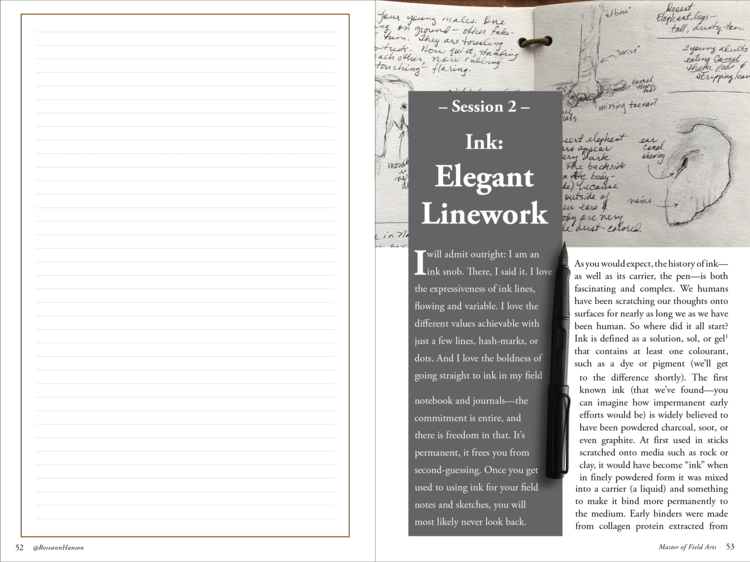 52 @RoseannHanson
four young males. One
on ground — other fake-
turn. They are tousling
trunk. Now quiet, standing
each other, now rubbing
touching — flaring.
"elbow"
"wrist"
missing toenail
Desert
Elephant legs —
tall, dusty-tan.
2 young adults
eating Camel
Thorn Pods &
ear
canal
showing
veins
desert elephant
appear
very dark
the backside
the body —
because
outside of
ears &
body are very
dust-colored.
– Session 2 –
Ink:
Elegant
Linework
I will admit outright: I am an
ink snob. There, I said it. I love
the expressiveness of ink lines,
flowing and variable. I love the
different values achievable with
just a few lines, hash-marks, or
dots. And I love the boldness of
going straight to ink in my field
notebook and journals—the
commitment is entire, and
there is freedom in that. It's
permanent, it frees you from
second-guessing. Once you get
used to using ink for your field
notes and sketches, you will
most likely never look back.
As you would expect, the history of ink—
as well as its carrier, the pen—is both
fascinating and complex. We humans
have been scratching our thoughts onto
surfaces for nearly as long we as we have
been human. So where did it all start?
Ink is defined as a solution, sol, or gel¹
that contains at least one colourant,
such as a dye or pigment (we'll get
to the difference shortly). The first
known ink (that we've found—you
can imagine how impermanent early
efforts would be) is widely believed to
have been powdered charcoal, soot, or
even graphite. At first used in sticks
scratched onto media such as rock or
clay, it would have become "ink" when
in finely powdered form it was mixed
into a carrier (a liquid) and something
to make it bind more permanently to
the medium. Early binders were made
from collagen protein extracted from
Master of Field Arts 53